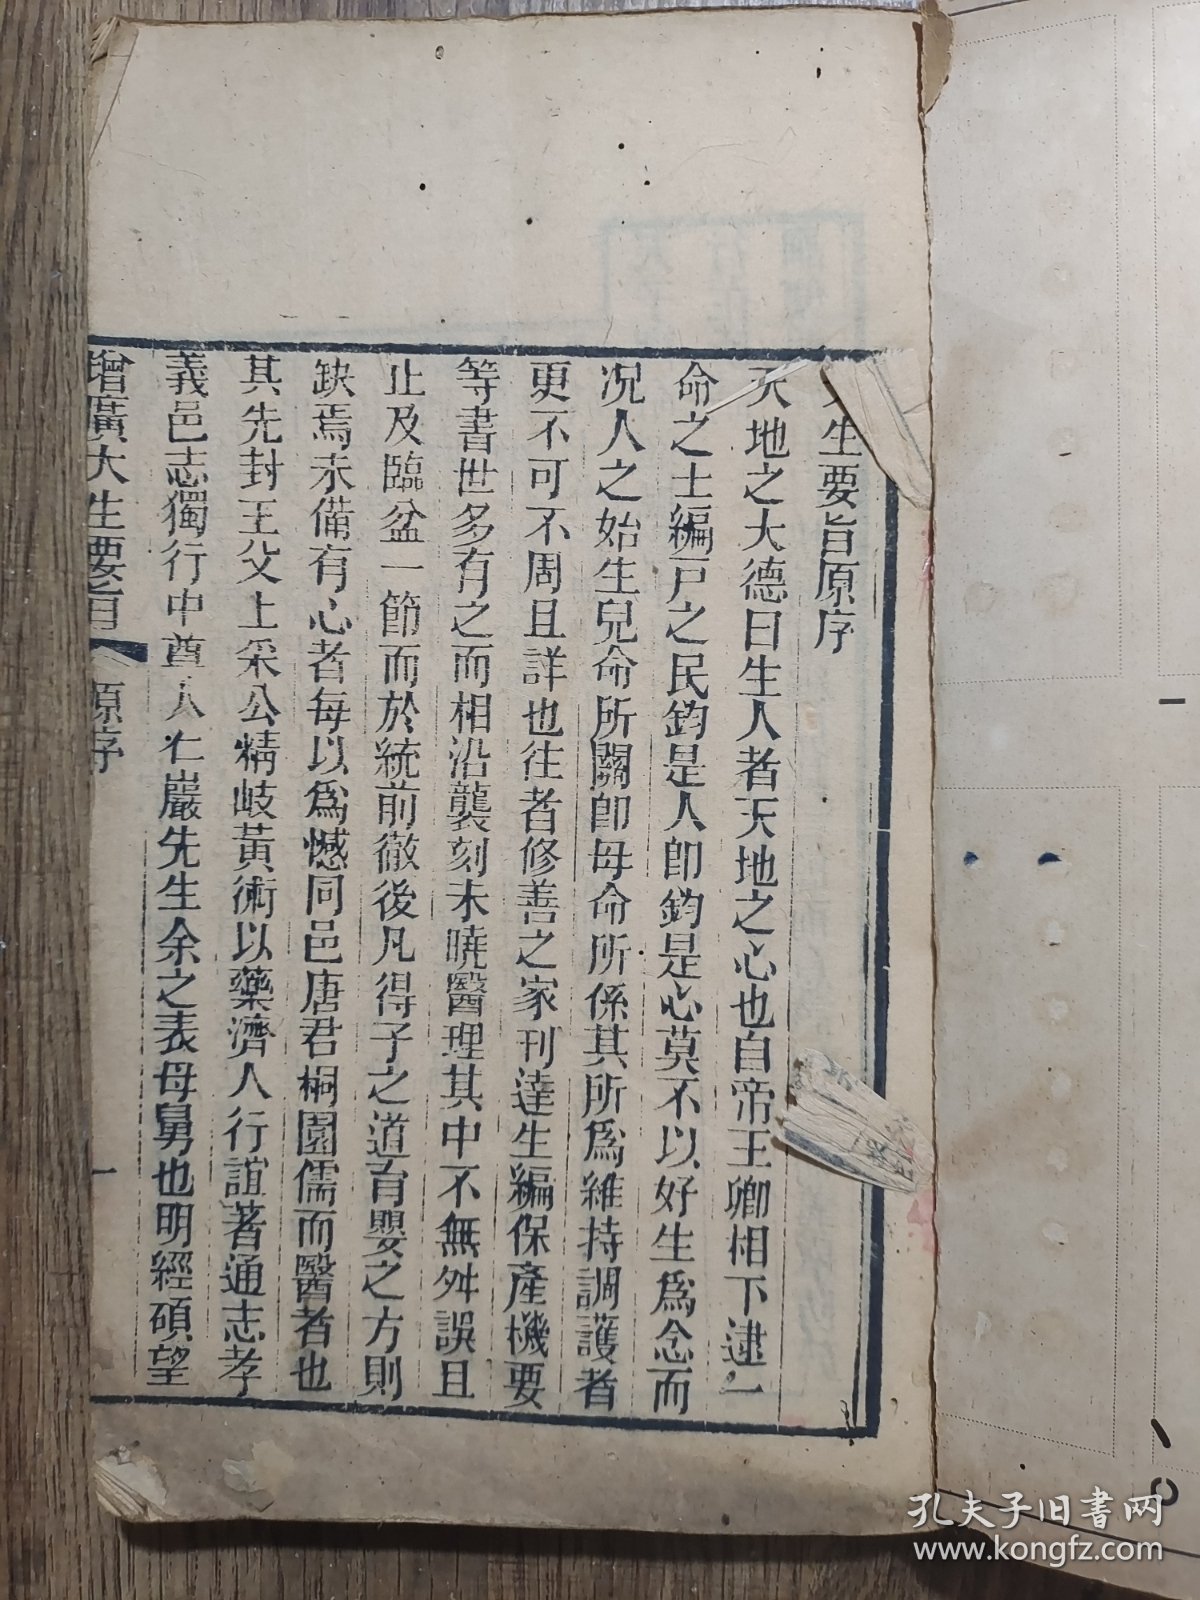 生要旨原序
天地之大德曰生人者天地之心也自帝王卿相下逮一
命之士編戸之民鈞是人卽鈞是心莫不以好生爲念而
况人之始生兒命所關卽母命所係其所爲維持調護者
更不可不周且詳也往者修善之家刊達生編保產機要
等書世多有之而相沿襲刻未曉醫理其中不無舛誤且
止及臨盆一節而於統前徹後凡得子之道育嬰之方則
缺焉未備有心者每以爲憾同邑唐君桐園儒而醫者也
其先封王父上采公精岐黃術以藥濟人行誼著通志孝
義邑志獨行中尊人仁巖先生余之表母舅也明經碩望
增廣大生要旨 原序 一
孔夫子旧书网
www.kongfz.com